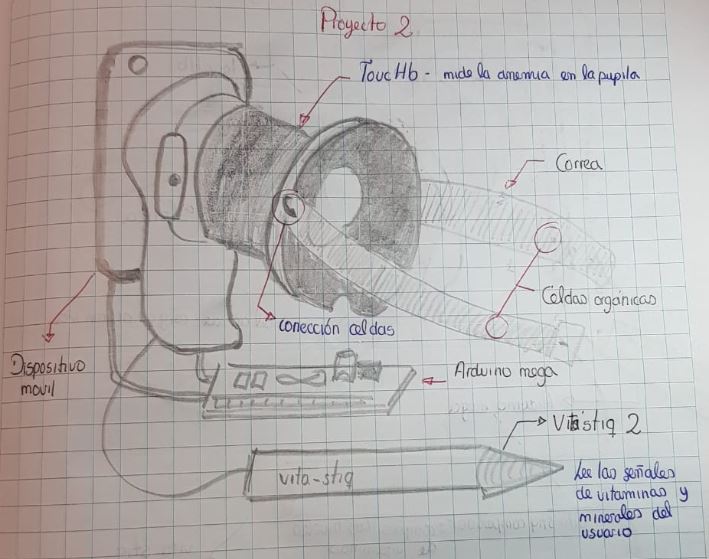 Proyecto 2
ToucHb - mide la anemia en la pupila
Correa
Celdas orgánicas
conección celdas
Dispositivo
movil
Arduino mega
Vitastiq 2
vita-stiq
Lee las señales
de vitaminas y
minerales del
usuario